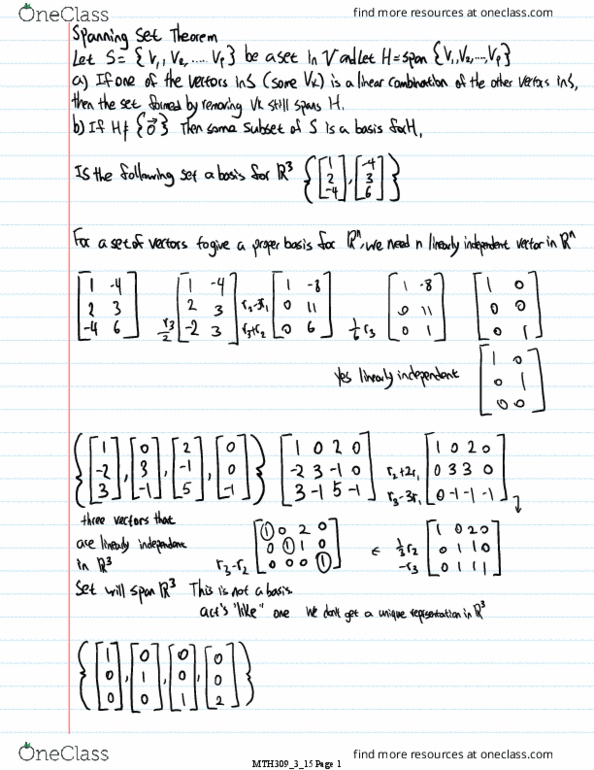 OneClass
find more resources at oneclass.com
Spanning Set Theorem
Let S = {V1, V2, .... Vp} be a set in V and let H = span {V1, V2, ..., Vp}
a) If one of the vectors in S (some Vk) is a linear combination of the other vectors in S,
then the set formed by removing Vk still spans H.
b) If H ≠ {0⃗} Then some subset of S is a basis for H,
Is the following set a basis for ℝ³ { [1 2 -4], [-4 3 6] }
For a set of vectors to give a proper basis for ℝⁿ, we need n linearly independent vector in ℝⁿ
[1 -4; 2 3; -4 6] r3/2 [1 -4; 2 3; -2 3] r3+r2 [1 -8; 0 11; 0 6] 1/6 r3 [1 -8; 0 11; 0 1] [1 0; 0 0; 0 1]
Yes linearly independent [1 0; 0 1; 0 0]
{ [1 -2 3], [0 3 -1], [2 -1 5], [0 0 -1] } [1 0 2 0; -2 3 -1 0; 3 -1 5 -1] r2+2r1 r3-3r1 [1 0 2 0; 0 3 3 0; 0 -1 -1 -1]
three vectors that
are linearly independent
in ℝ³
r3-r2 [1 0 2 0; 0 1 1 0; 0 0 0 1] ← 1/3 r2 -r3 [1 0 2 0; 0 1 1 0; 0 1 1 1]
Set will span ℝ³ This is not a basis.
act's "like" one We don't get a unique representation in ℝ³
{ [1 0 0], [0 1 0], [0 0 1], [0 0 2] }
OneClass
find more resources at oneclass.com
MTH309_3_15 Page 1